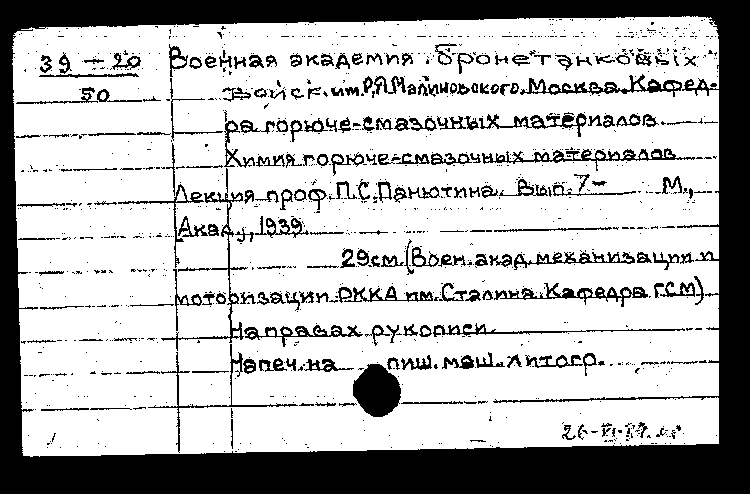 39-20 Военная академия бронетанковых
50 войск. им. Р.Я. Малиновского. Москва. Кафед-
ра горюче-смазочных материалов.
Химия горюче-смазочных материалов
Лекция проф. П.С. Панютина. Вып. 7- М.,
Акад., 1939.
29см. (Воен. акад. механизации и
моторизации РККА им. Сталина. Кафедра ГСМ)
На правах рукописи.
Напеч. на пиш. маш. литогр.